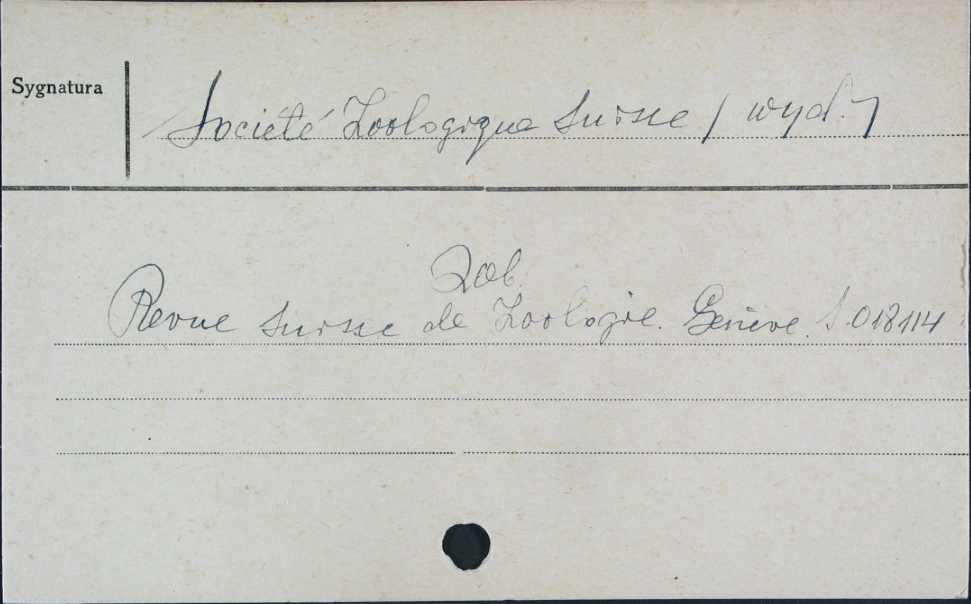 Sygnatura
Société Zoologique Suisse / wyd. /
Zob.
Revue Suisse de Zoologie. Genève. S 018114